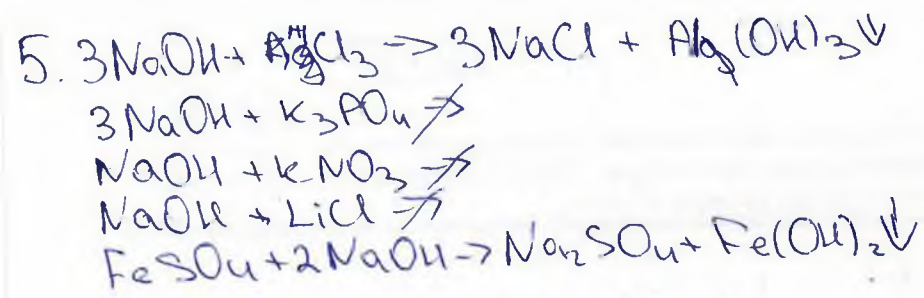 5. 3NaOH + AlCl₃ → 3NaCl + Al(OH)₃↓
3NaOH + K₃PO₄ ↛
NaOH + KNO₃ ↛
NaOH + LiCl ↛
FeSO₄ + 2NaOH → Na₂SO₄ + Fe(OH)₂↓